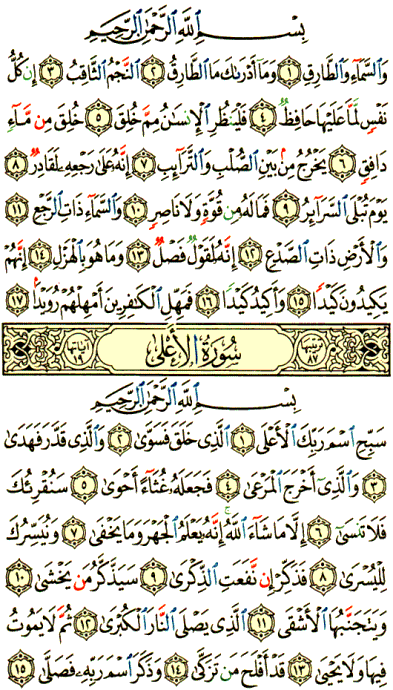 بِسْمِ اللَّهِ الرَّحْمَٰنِ الرَّحِيمِ
وَالسَّمَاءِ وَالطَّارِقِ ١ وَمَا أَدْرَاكَ مَا الطَّارِقُ ٢ النَّجْمُ الثَّاقِبُ ٣ إِن كُلُّ
نَفْسٍ لَّمَّا عَلَيْهَا حَافِظٌ ٤ فَلْيَنظُرِ الْإِنسَانُ مِمَّ خُلِقَ ٥ خُلِقَ مِن مَّاءٍ
دَافِقٍ ٦ يَخْرُجُ مِن بَيْنِ الصُّلْبِ وَالتَّرَائِبِ ٧ إِنَّهُ عَلَىٰ رَجْعِهِ لَقَادِرٌ ٨
يَوْمَ تُبْلَى السَّرَائِرُ ٩ فَمَا لَهُ مِن قُوَّةٍ وَلَا نَاصِرٍ ١٠ وَالسَّمَاءِ ذَاتِ الرَّجْعِ ١١
وَالْأَرْضِ ذَاتِ الصَّدْعِ ١٢ إِنَّهُ لَقَوْلٌ فَصْلٌ ١٣ وَمَا هُوَ بِالْهَزْلِ ١٤ إِنَّهُمْ
يَكِيدُونَ كَيْدًا ١٥ وَأَكِيدُ كَيْدًا ١٦ فَمَهِّلِ الْكَافِرِينَ أَمْهِلْهُمْ رُوَيْدًا ١٧
ترتيبها ٨٧ سُورَةُ الْأَعْلَىٰ آياتها ١٩
بِسْمِ اللَّهِ الرَّحْمَٰنِ الرَّحِيمِ
سَبِّحِ اسْمَ رَبِّكَ الْأَعْلَى ١ الَّذِي خَلَقَ فَسَوَّىٰ ٢ وَالَّذِي قَدَّرَ فَهَدَىٰ
٣ وَالَّذِي أَخْرَجَ الْمَرْعَىٰ ٤ فَجَعَلَهُ غُثَاءً أَحْوَىٰ ٥ سَنُقْرِئُكَ
فَلَا تَنسَىٰ ٦ إِلَّا مَا شَاءَ اللَّهُ إِنَّهُ يَعْلَمُ الْجَهْرَ وَمَا يَخْفَىٰ ٧ وَنُيَسِّرُكَ
لِلْيُسْرَىٰ ٨ فَذَكِّرْ إِن نَّفَعَتِ الذِّكْرَىٰ ٩ سَيَذَّكَّرُ مَن يَخْشَىٰ ١٠
وَيَتَجَنَّبُهَا الْأَشْقَى ١١ الَّذِي يَصْلَى النَّارَ الْكُبْرَىٰ ١٢ ثُمَّ لَا يَمُوتُ
فِيهَا وَلَا يَحْيَىٰ ١٣ قَدْ أَفْلَحَ مَن تَزَكَّىٰ ١٤ وَذَكَرَ اسْمَ رَبِّهِ فَصَلَّىٰ ١٥